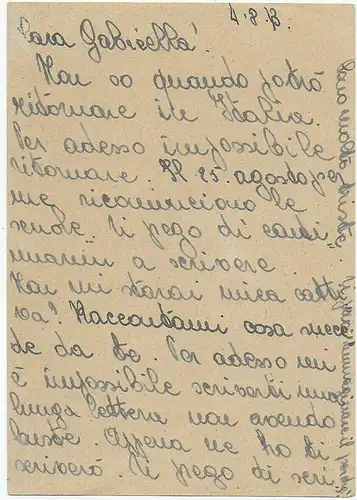 4.8.43
Cara Gabriella!
Non so quando potrò
ritornare in Italia.
Per adesso impossibile
ritornare. Il 25. agosto per
me ricominciono le
scuole. Ti pego di conti
nuarin a scrivere
Non mi starai mica catti
va? Raccontami cosa succe
de da te. Per adesso mi
è impossibile scriverti una
lunga lettera non avendo
buste. Appena ne ho ti
scriverò. Ti pego di scri